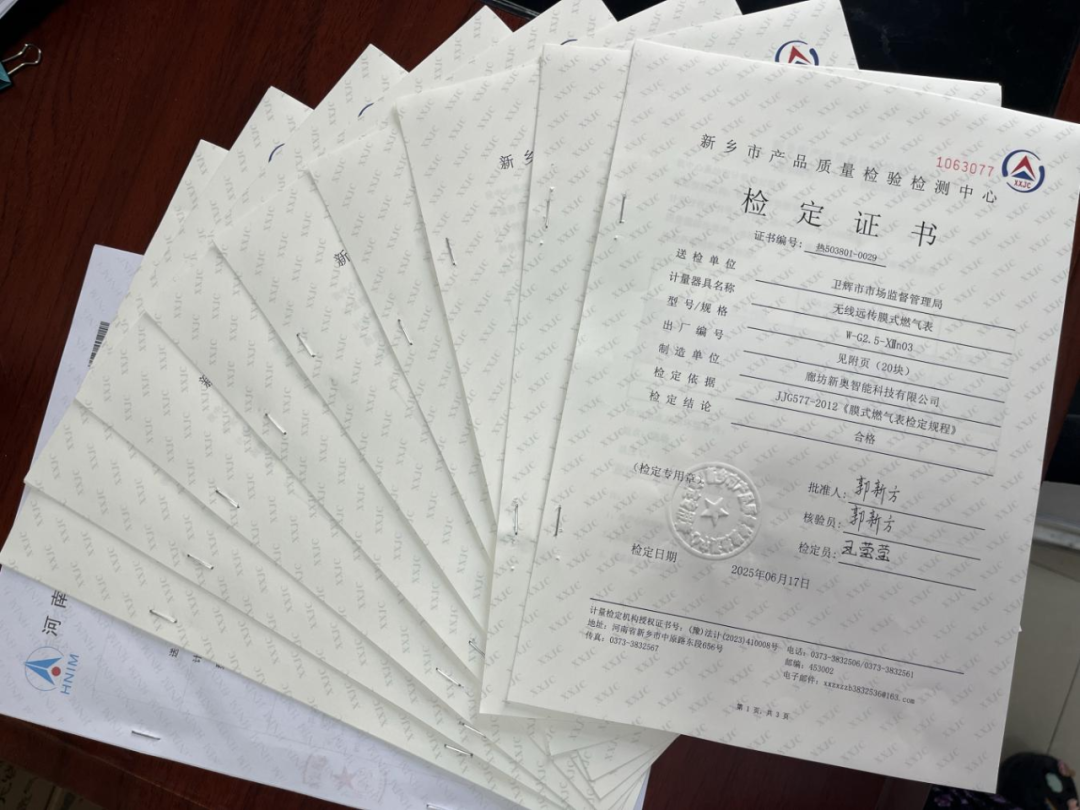 新乡市产品质量检验检测中心
1063077
XXJC
检定证书
证书编号: 热503801-0029
送检单位 卫辉市市场监督管理局
计量器具名称 无线远传膜式燃气表
型号/规格 W-G2.5-XⅢn03
出厂编号 见附页(20块)
制造单位 廊坊新奥智能科技有限公司
检定依据 JJG577-2012《膜式燃气表检定规程》
检定结论 合格
(检定专用章)
批准人: 郭新方
核验员: 郭新方
检定员: 王莹莹
检定日期 2025年06月17日
计量检定机构授权证书号: (豫)法计(2023)410008号 电话: 0373-3832506/0373-3832561
地址: 河南省新乡市中原路东段656号 邮编: 453002
传真: 0373-3832567 电子邮件: xxzxzzb3832536@163.com
第 1 页, 共 3 页
新乡
新
新
河南
HNIM